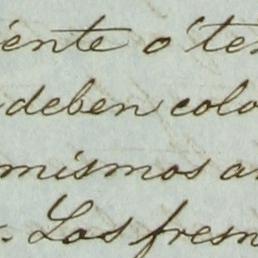 iente o' ten
deben colo
mismos a
. Las fresn